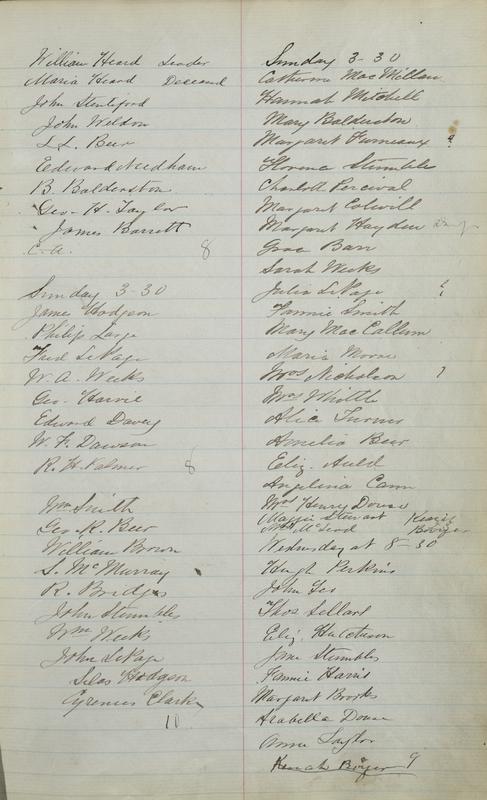 William Heard Leader
Maria Heard Deceased
John Stentiford
John Weldon
L. L. Beer
Edward Needham
B. Balderston
Geo. H. Taylor
James Barrett
C. A. 8
Sunday 3-30
James Hodgson
Philip Large
Fred LePage
W. A. Weeks
Geo. Harvie
Edward Davey
W. F. Dawson
R. H. Palmer 8
Wm Smith
Geo. R. Beer
William Brown
S. McMurray
R. Bridges
John Stumbles
Wm Weeks
John LePage
Silas Hodgson
Cyrenus Clark
10
Sunday 3-30
Catherine MacMillan
Hannah Mitchell
Mary Balderston
Margaret Furneaux 9
Florence Stumbles
Charlott Percival
Margaret Colwill
Margaret Hayden
Grace Barr
Sarah Weeks
Julia LePage
Fannie Smith
Mary MacCallum
Maria Moore
Mrs Nicholson
Mrs Whittle
Alice Turner
Amelia Beer
Eliz. Auld
Angelina Cann
Mrs Henry Douse
Maggie Stewart Keziah
Mrs McLeod Boyer
Wednesday at 8-30
Hugh Perkins
John Geo
Thos Sellard
Eliz. Hutcheson
Jane Stumbles
Fannie Harris
Margaret Brooks
Arabella Douse
Anna Taylor
Keziah Boyer 9